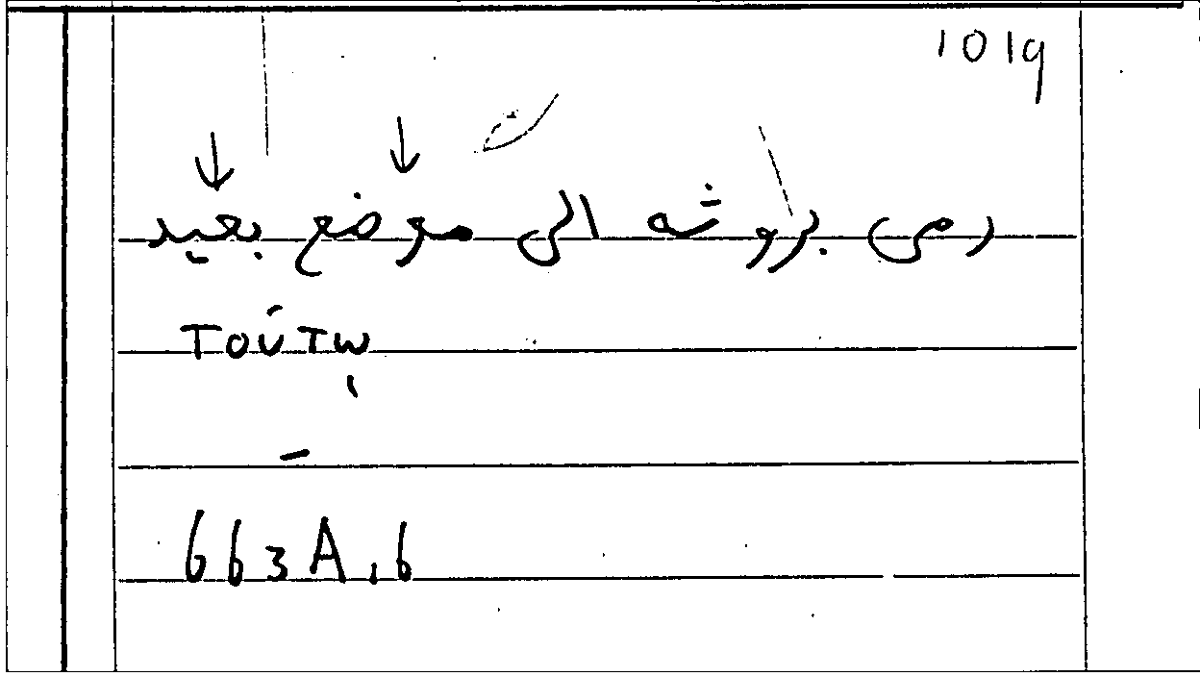 1019
رمى بروثه الى موضع بعيد
τούτῳ
–
663A16